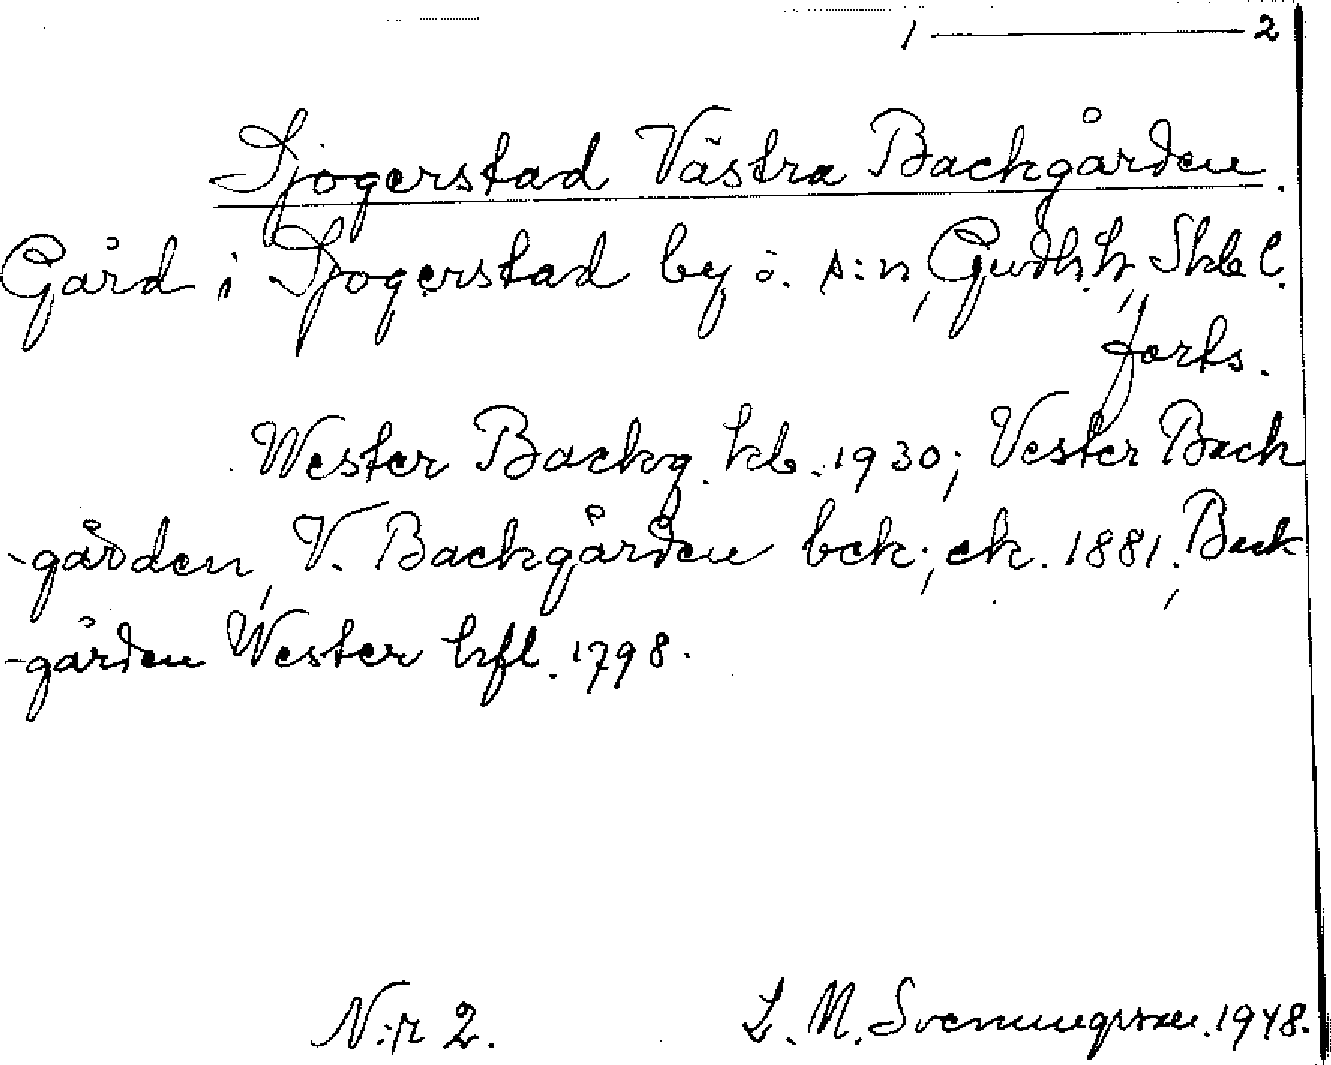 1 — 2
Sjogerstad Västra Backgården.
Gård i Sjogerstad by o. s:n, Gudh. h, Skb l.
forts.
Wester Backg. kb. 1930; Vester Back
-gården, V. Backgården bck; ek. 1881; Back
-gården Wester hfl. 1798.
N:r 2. L. M. Svenungsson. 1948.